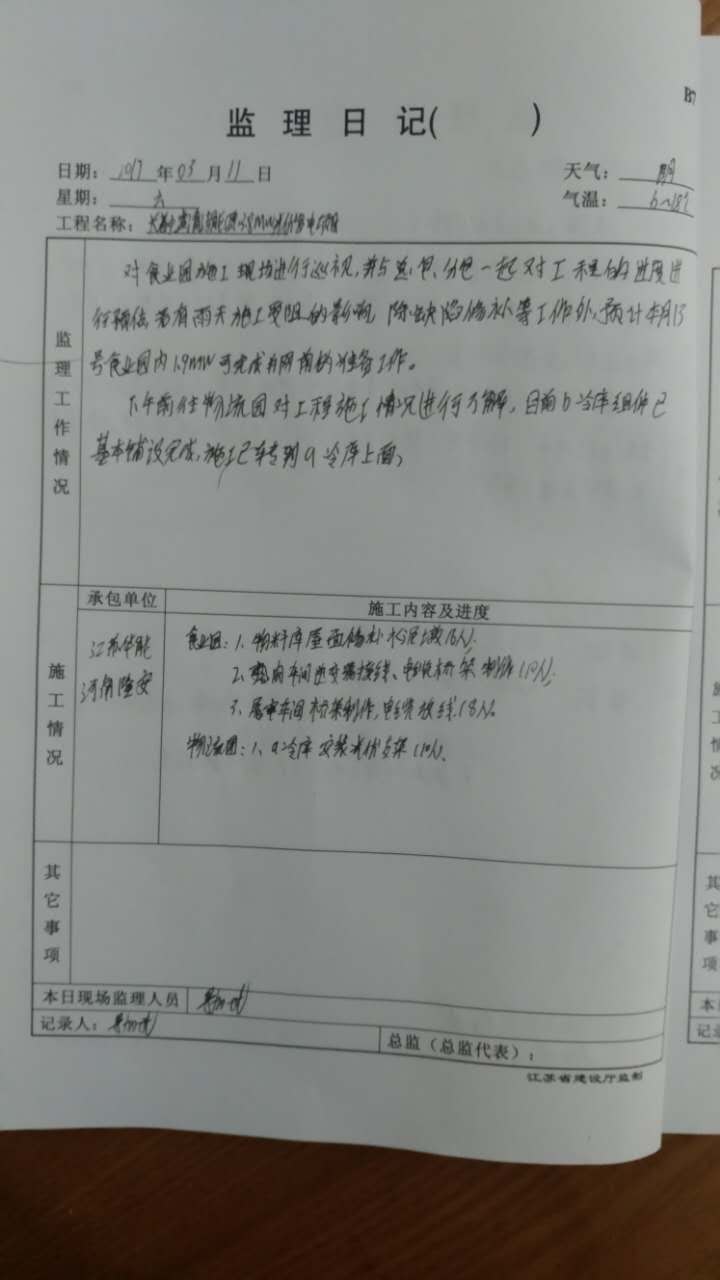 B7
监 理 日 记( )
日期: 2017 年 03 月 11 日
天气: 阴
星期: 六
气温: 6~18℃
工程名称:
监理工作情况
对食业园施工现场进行巡视,并与总包、分包一起对工程的进度进
行预估若有雨天施工受阻的影响 除缺陷修补等工作外,预计本月13
号食业园内1.9MW可完成并网前的准备工作。
下午前往物流园对工程施工情况进行了解,目前b冷库组件已
基本铺设完成,施工已转到a冷库上面,
施工情况
承包单位
施工内容及进度
江苏华能
河南隆安
食业园:1、物料库屋面修补 水泥墩(6人).
2、 车间逆变器接线、电缆桥架 制作(10人).
3、 车间桥架制作,电缆接线.(8人).
物流园:1、a冷库 安装光伏支架(10人).
其它事项
本日现场监理人员
记录人:
总监(总监代表):
江苏省建设厅监制